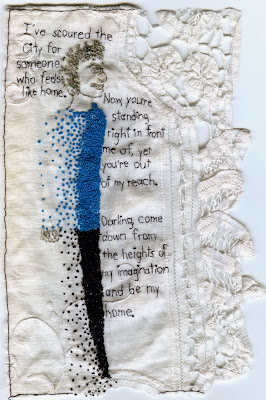 I've scoured the
City for
someone
who feels
like home.
Now, you're
standing
right in font
me of, yet
you're out
of my reach.
Darling, come
down from
the heights of
my imagination
and be my
home.